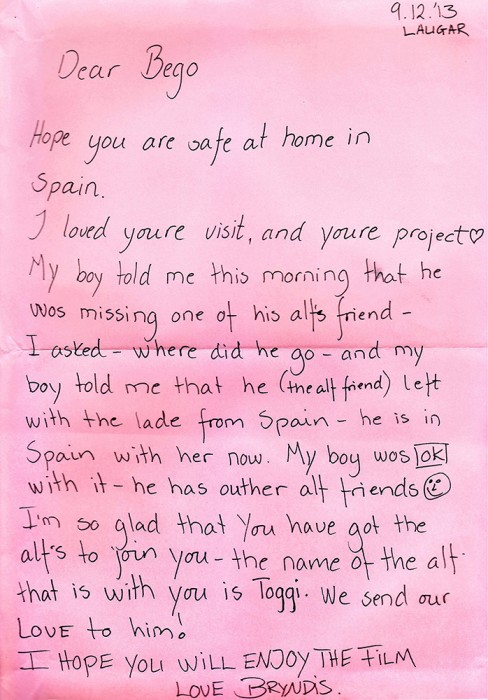 9.12.'13
LAUGAR
Dear Bego
Hope you are safe at home in
Spain.
I loved youre visit, and youre project♡
My boy told me this morning that he
wos missing one of his alf's friend -
I asked - where did he go - and my
boy told me that he (the alf friend) left
with the lade from Spain - he is in
Spain with her now. My boy wos OK
with it - he has outher alf friends ☺
I'm so glad that You have got the
alf's to join you - the name of the alf
that is with you is Toggi. We send our
LOVE to him!
I HOPE YOU WILL ENJOY THE FILM
LOVE BRYNDÍS.